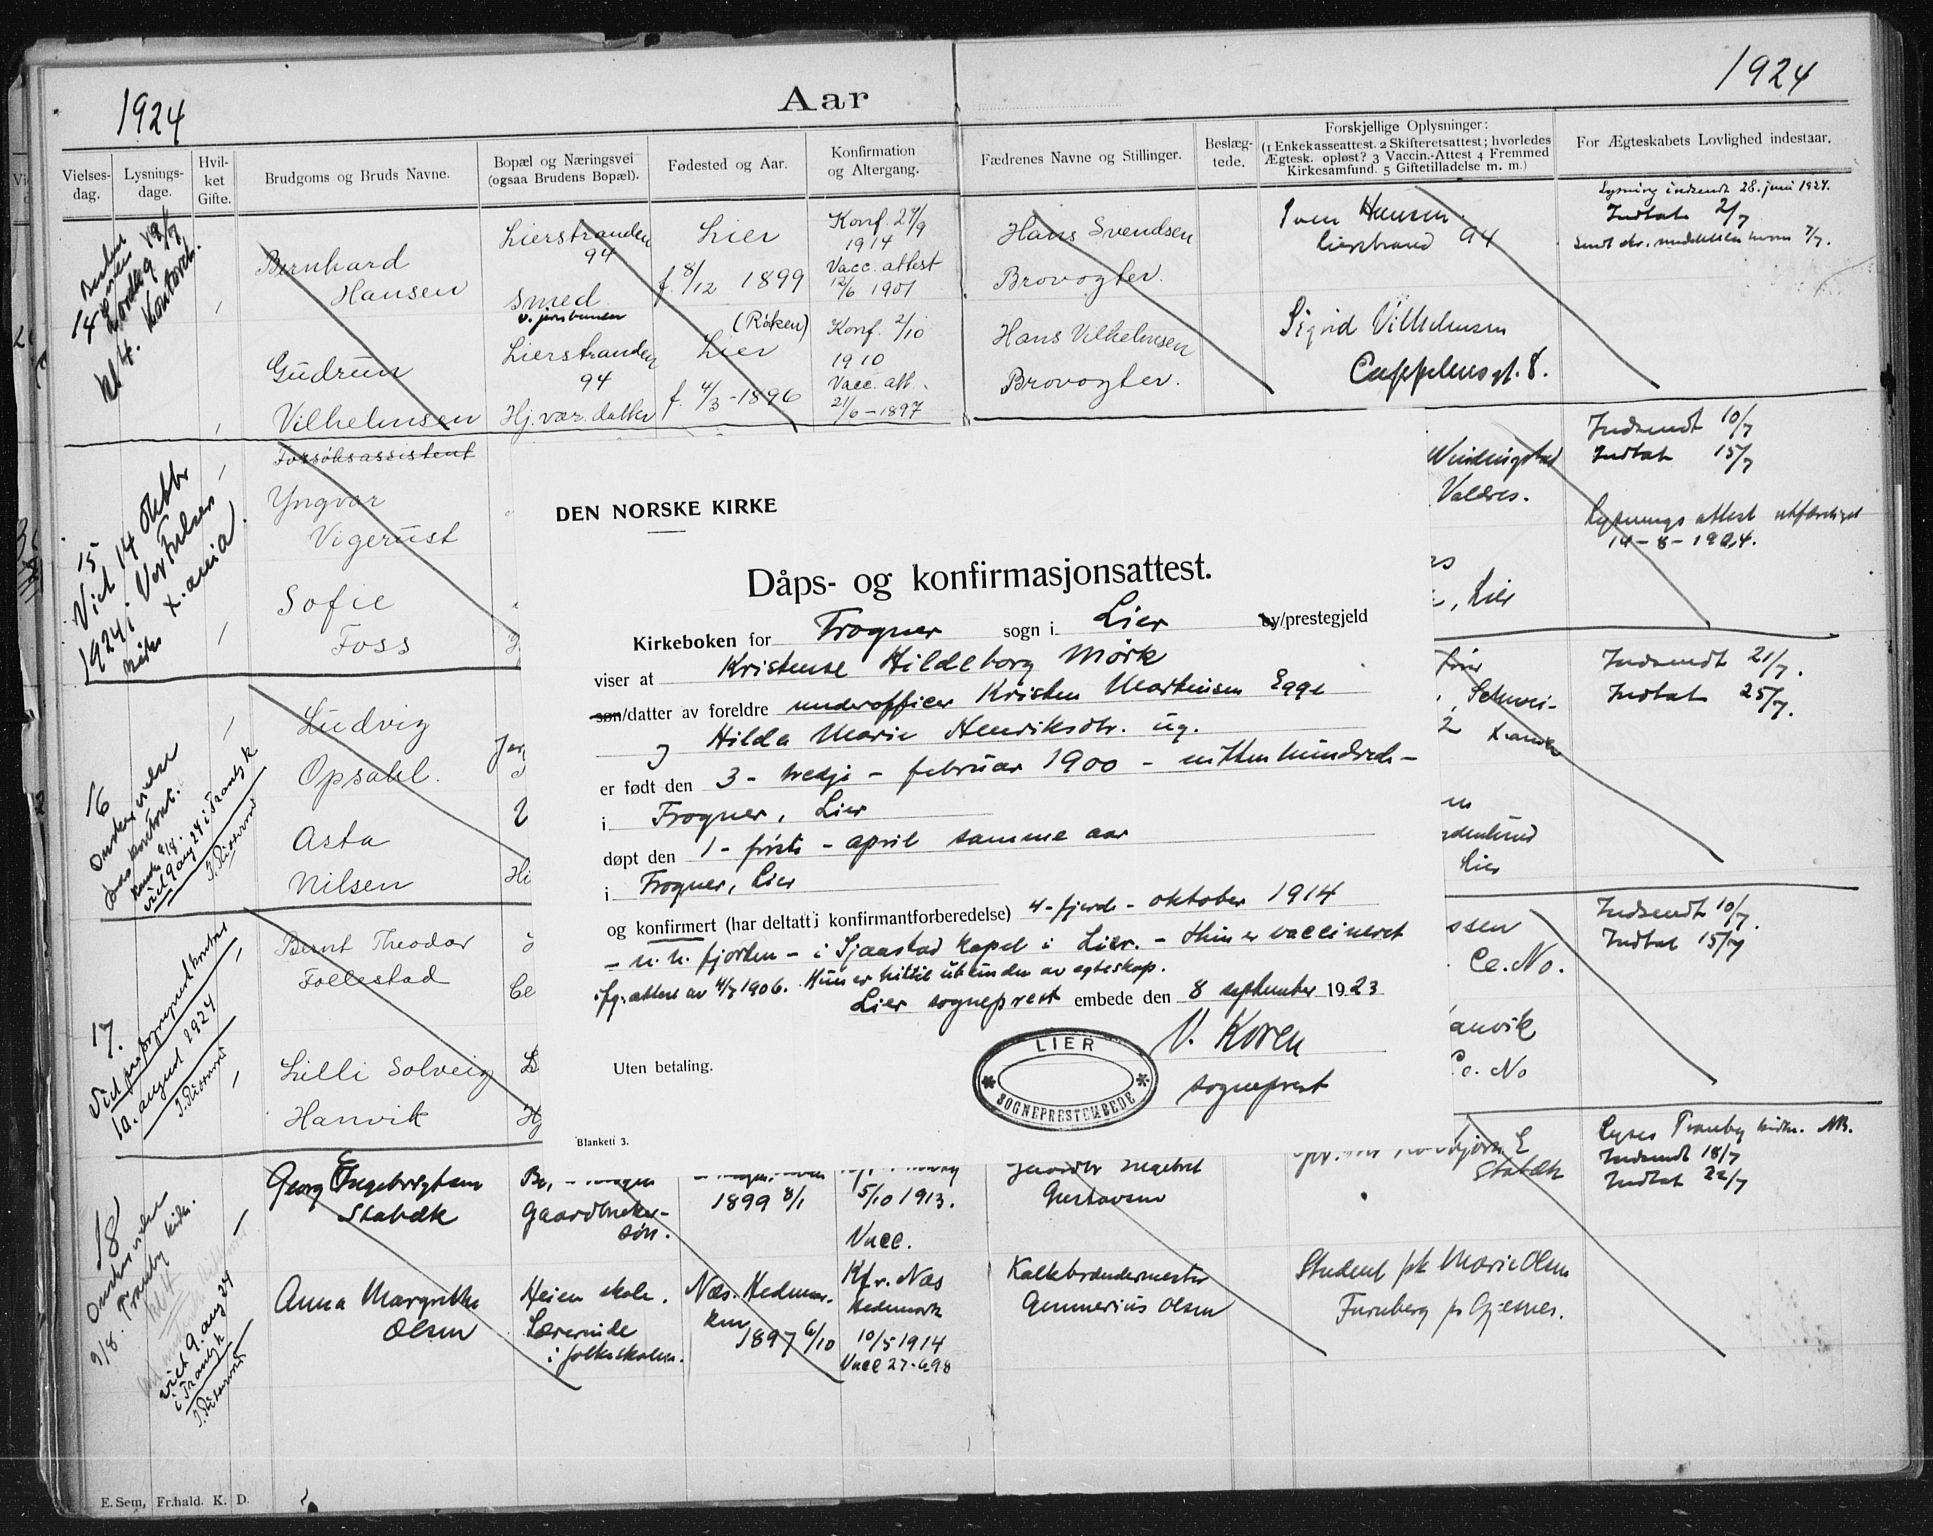 1924
Aar
1924
Vielses-dag.
Lysnings-dage.
Hvil-ket Gifte.
Brudgoms og Bruds Navne.
Bopæl og Næringsvei (ogsaa Brudens Bopæl).
Fødested og Aar.
Konfirmation og Altergang.
Fædrenes Navne og Stillinger.
Beslæg-tede.
Forskjellige Oplysninger:
(1 Enkekasseattest. 2 Skifteretsattest; hvorledes
Ægtesk. opløst? 3 Vaccin.-Attest 4 Fremmed
Kirkesamfund. 5 Giftetilladelse m. m.)
For Ægteskabets Lovlighed indestaar.
14
kl 4. Kontoret.
Bernhard
Hansen
Lierstranden
94
Smed
Lier
f. 8/12 1899
(Røken)
Konf. 27/9
1914
Vacc. attest
12/6 1901
Hans Svendsen
Brovogter.
Sven Hansen.
Lierstrand 94
Lysning indsendt 28. juni 1924.
Indtat 2/7
Gudrun
Vilhelmsen
Lierstranden
94
Hj. vær. datter
Lier
f. 4/3 - 1896
Konf. 2/10
1910
Vacc. att.
21/6 - 1897
Hans Vilhelmsen
Brovogter.
Sigrid Vilhelmsen
Cappelensgt. 8.
15
Vied 14 oktbr
1924 i
Forsøksassistent
Yngvar
Vigerust
Sofie
Foss
Valdres.
Lier
Indsendt 10/7
Indtat 15/7
Lysnings attest utfærdiget
14 - 8 - 1924.
16
Ludvig
Opsahl.
Asta
Nilsen
vied 9 aug 24 i Tranby k
Schwei-
Lier
Indsendt 21/7.
Indtat 25/7.
17.
10. august 1924
Bernt Theodor
Follestad
Lilli Solveig
Hanvik
Ce. No.
Hanvik
Ce. No
Indsendt 10/7.
Indtat 15/7
DEN NORSKE KIRKE
Dåps- og konfirmasjonsattest.
Kirkeboken for Frogner sogn i Lier by/prestegjeld
viser at Kristense Hildeborg Mörk
søn/datter av foreldre underofficer Kristen Martinsen Egge
og Hilda Marie Henriksdtr. ug.
er født den 3 - tredje - februar 1900 - nittenhundrede -
i Frogner, Lier
døpt den 1 - förste - april samme aar
i Frogner, Lier
og konfirmert (har deltatt i konfirmantforberedelse) 4 - fjerde - oktober 1914
- n. n. fjorten - i Sjaastad kapel i Lier. - Hun er vaccineret
ifg. attest av 4/7 1906. Hun er hittil ubunden av egteskap.
Lier sogneprest embede den 8 september 1923
V. Koren
sogneprest
Uten betaling.
LIER
SOGNEPRESTEMBEDE
Blankett 3.
18
9/8. Tranby kirke.
vied 9. aug 24
i Tranby k
Georg Engebrigtsen
Stabæk
Gaardbruker-
søn.
1899 8/1
5/10 1913.
Vacc.
Gustavsen
Stabæk
Lyses Tranby kirke. NB.
Indsendt 18/7
Indtat 22/7
Anna Margrethe
Olsen
Heien skole.
Lærerinde
i folkeskolen.
Næs. Hedmar-
ken
1897 6/10
Kfr. Næs
Hedemark
10/5 1914
Vacc 27-6-98
Kalkbrændermester
Gunnerius Olsen
Student frk Marie Olsen
Furnberg pr Gjesnes.
E. Sem, Fr.hald. K. D.